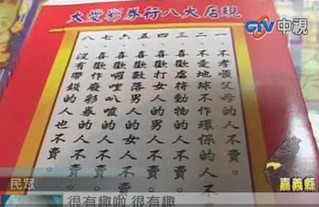 CTV中視
大發彩券行八大店規
一、不孝順父母的人不賣。
二、不愛地球不作環保的人不
三、喜歡虐待動物的人不
四、喜歡打女人的男人不賣。
五、喜歡數落男人的女人不賣。
六、喜歡囉哩叭嗦的人不賣。
七、喜歡作廢彩券的人不賣。
八、沒有帶錢的人也不賣。
嘉義縣
民眾
很有趣啦 很有趣